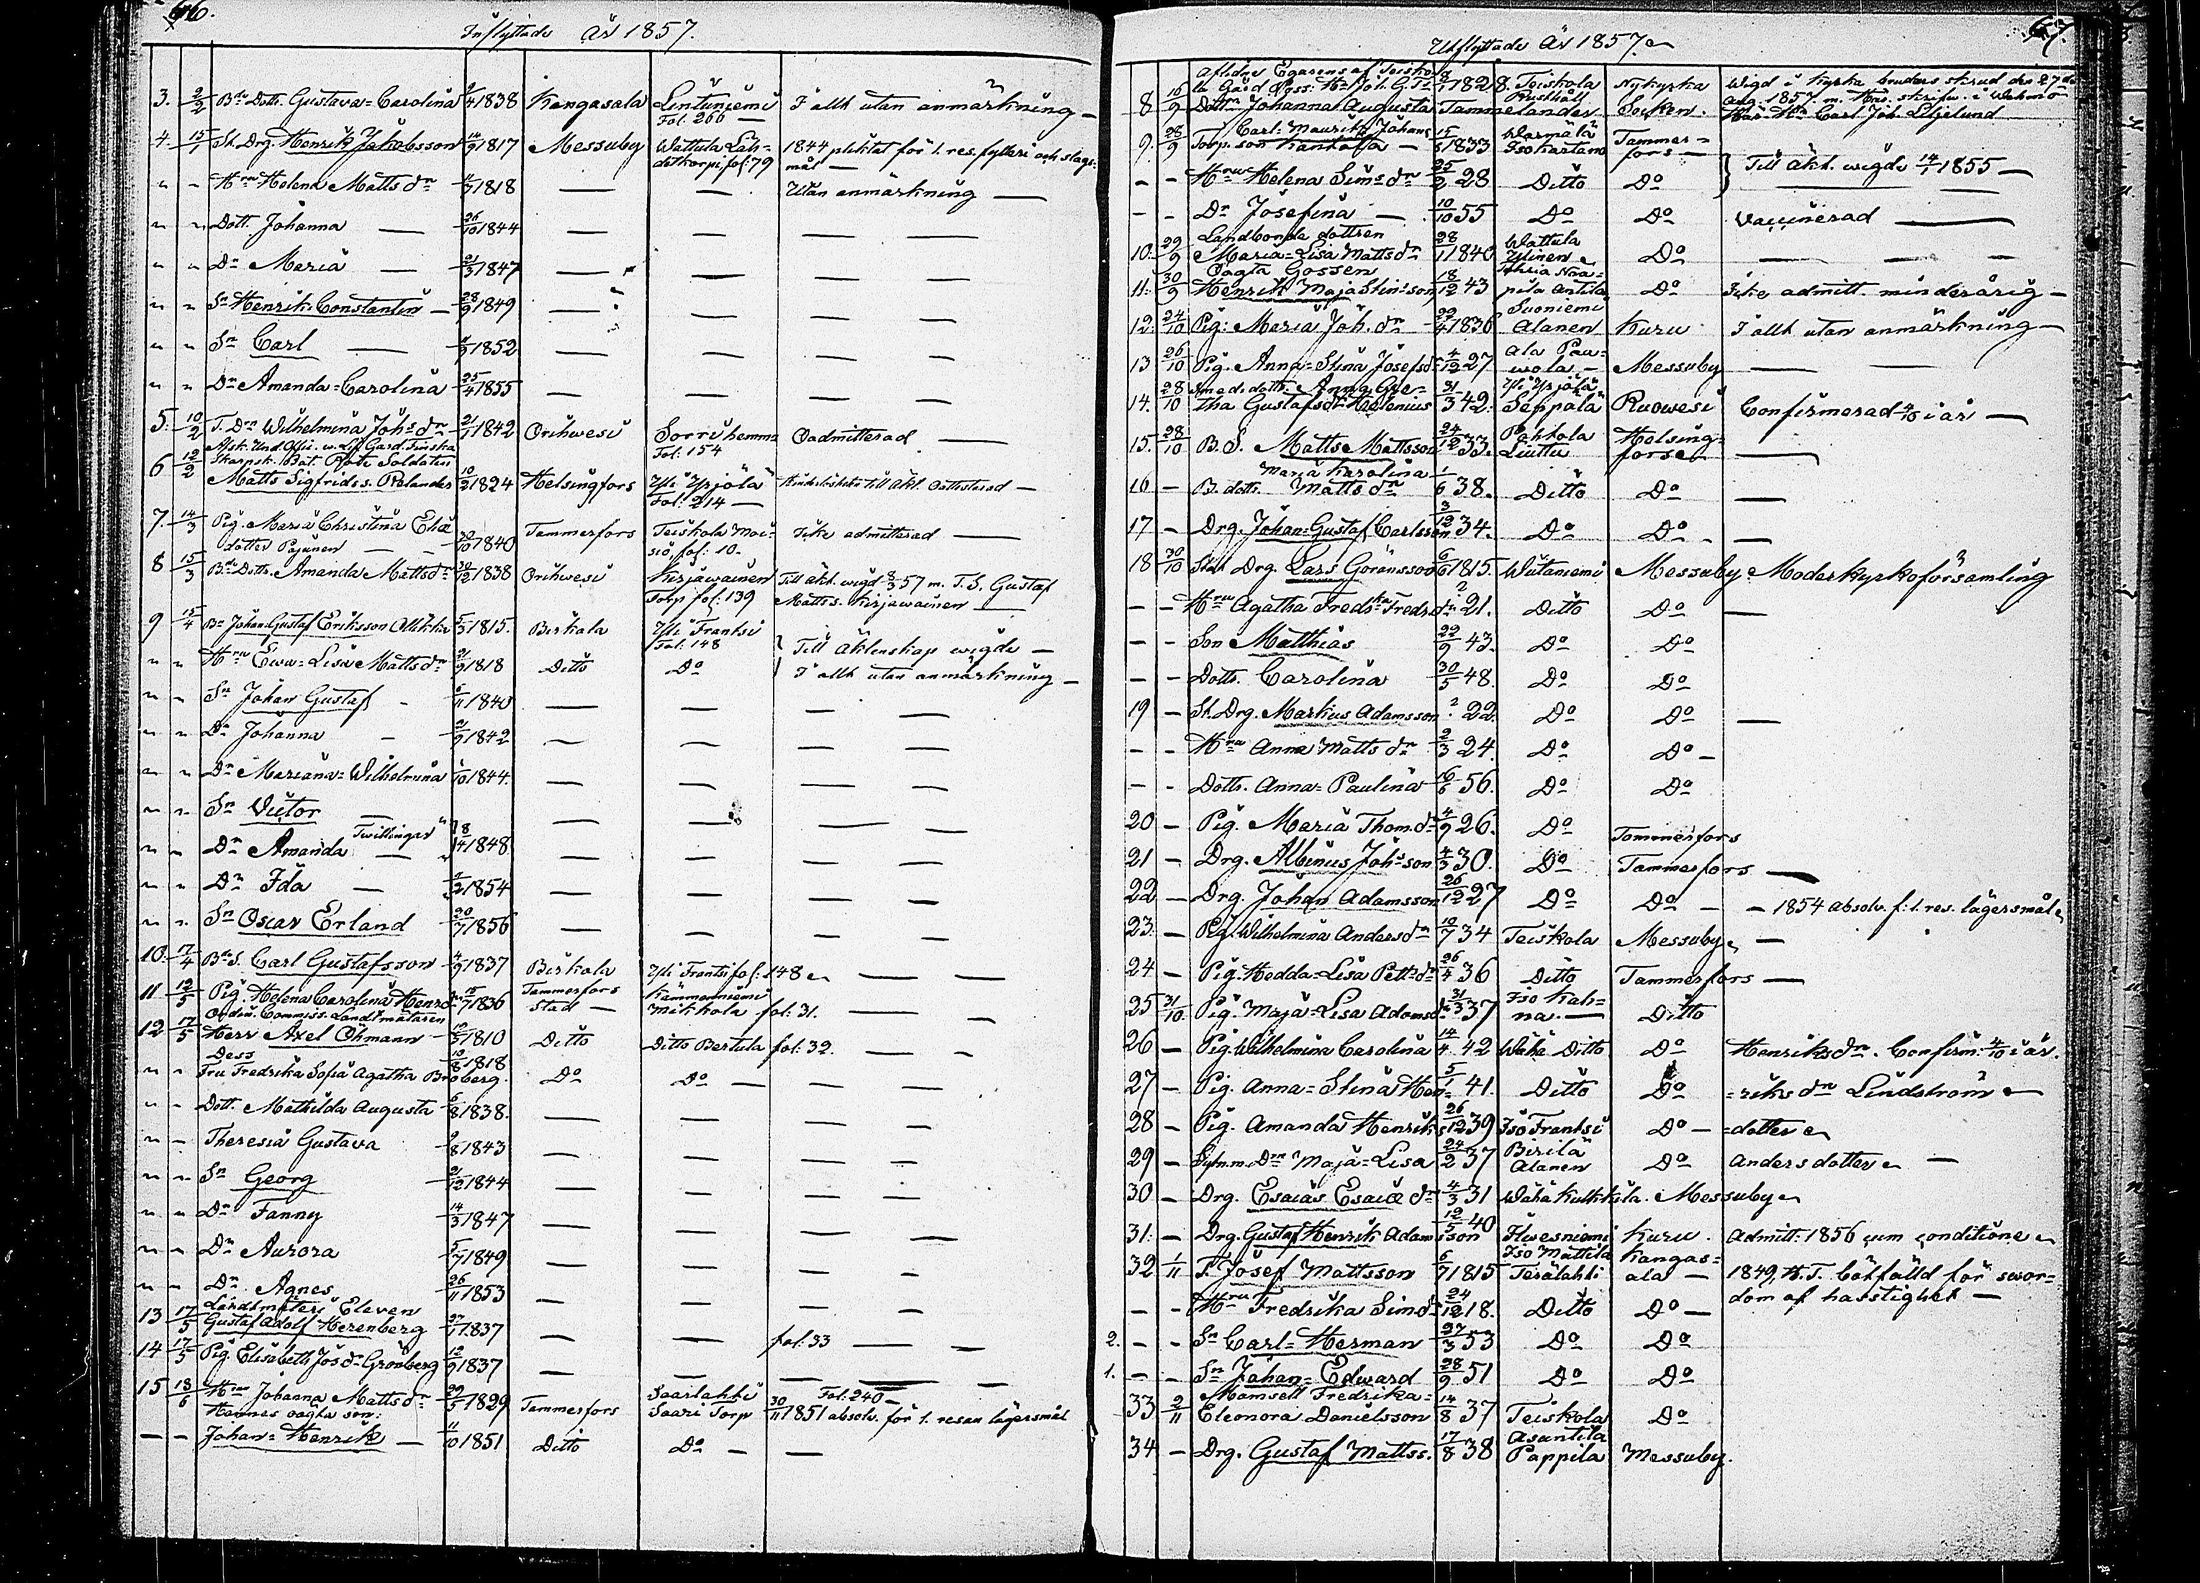 66.
Inflyttade År 1857.
3. 2/2 Bde Dott. Gustava=Carolina 1838 Kangasala Lintuniemi I allt utan anmärkning
Fol. 266
4. 15/1 St. Drg. Henrik Jakobsson 14/9 1817 Messuby Wattula Läh- 1844 pliktat för 1. res. fylleri och slags-
detkorpi fol: 79 mål
" - Hru Helena Matts dr 1818 — — Utan anmärkning
" " Dott. Johanna — 26/10 1844 — — —
" " Dr Maria — 21/3 1847 — — —
" " Sn Henrik Constantin — 28/9 1849 — — —
" " Sn Carl — 1852 — — —
" " Dr Amanda=Carolina 25/4 1855 — — —
5. 10/2 T. Dr Wilhelmina Johs dr 2/7 1842 Orihwesi Sorri hemm: Oadmitterad
Fol. 154
Afsk. Und. Offic. w. Lif. Gard. Finska
6 12/2 Skarpsk. Bat.
Matts Sigfrids s. Rolander 10/2 1824 Helsingfors Yli Ypjölä
Fol: 214
7. 14/3 Pig. Maria Christina Eliæ Tammerfors Teiskola Moi- Icke admitterad
dotter Pajunen — 20/10 1840 sio fol: 10.
8 15/3 Bde Dottr. Amanda Matts dr 30/12 1838 Orihwesi Kirjawainen Till äkt. wigd 8/3 57 m. T. S. Gustaf
Torp fol: 139 Matts s. Kirjawainen
9 15/4 Bn Johan Gustaf Eriksson 5/3 1815. Birkala Yli Frantsi
Fol: 148 Till äktenskap wigde
" " Hru Ewa=Lisa Matts dr 21/9 1818 Ditto Do I allt utan anmärkning
" " Sn Johan Gustaf - 6/11 1840 — — —
" " Dr Johanna - 2/9 1842 — — —
" " Dr Mariana=Wilhelmina 1/10 1844. — — —
" " Sn Victor — — — —
Twillingar
" " Dr Amanda — 18/4 1848 — — —
" " Dr Ida — 1854 — — —
" " Sn Oscar Erland 20/7 1856 — — —
10. 17/4 Bde S. Carl Gustafsson 4/9 1837 Birkala Yli Frantsi fol: 148 — —
11 12/5 Pig. Helena Carolina Henrs dr 15/7 1836 Tammerfors Kämmenniemi
Stad — Mikkola fol: 31. — —
Ordin. Commiss. Landtmätaren
12 17/5 Herr Axel Öhmann 1810 Ditto Ditto Bertula fol: 32. — —
Dess
" " Fru Fredrika Sofia Agatha Broberg. 1818 Do Do — — —
" - Dott. Mathilda Augusta 6/8 1838. — — —
" - Theresia Gustava 1843 — — —
" " Sn Georg 1844 — — —
" - Dr Fanny 14/3 1847 — — —
" - Dr Aurora 5/7 1849 — — —
" - Dr Agnes 26/11 1853 — — —
Landtmäteri Eleven
13 17/5 Gustaf Adolf Herenberg 1837 — — fol: 33 — —
14 17/5 Pig. Elisabeth Jos dr Grönberg 12/9 1837 — — — —
15 18/6 Hru Johanna Matts dr 29/5 1829 Tammerfors Saarlahti Fol: 240
Saari Torp 30/11 1851 absolv. för 1. resan lägersmål
Hennes oägta son:
— — Johan=Henrik — 11/10 1851 Ditto Do — —
67.
Utflyttade År 1857.
Aflidne Egarens af Teisko-
la Gård
8 16/9 Dottrn Johanna Augusta Tammelander 1828. Teiskola Rusthåll Nykyrka Socken. Wigd i Kyrka
Aug. 1857 m.
Carl Joh. Liljelund
9. 28/9 Torp. son Carl=Mauritz Johans 15/5 1833 Warmälä Isokartano Tammer=
fors —
- - Hru Helena Sims dr 25/2 28 Ditto Do Till äkt. wigde 14/1 1855
- - Dr Josefina — 10/10 55 Do Do Vaccinerad
Landbonde dottren
10. 29/9 Maria=Lisa Matts dr 28/1 1840 Wattula Ylinen Do — — —
Oägta Gossen
11. 30/9 Henrik Maja Stin: son 18/12 43 pila Antila Do Icke admitt. minderårig
12. 24/10 Pig: Maria Joh. dr 29/4 1836 Suoniemi Alanen Kuru I allt utan anmärkning
13 26/10 Pig. Anna=Stina Josefs dr 4/12 27 Ala Paa=
wola — Messuby — —
14. 28/10 Smed. dottr. Anna Aga=
tha Gustafs dr Helenius 31/3 42. Yli Ypjölä Seppälä Ruowesi Confirmerad 4/10 i år
15. 28/10 B. S. Matts Mattsson 24/12 33. Pohtola Liuttu Helsing=
fors —
16 - B. dottr. Maria Karolina Matts dr 1/6 38. Ditto Do —
17 - Drg. Johan=Gustaf Carlsson 3/12 34. Do Do —
18 30/10 Stat Drg. Lars Göransson 6/6 1815. Wiitaniemi Messuby Moderkyrkoförsamling
- - Hru Agatha Freds Freds dr ? 21. Ditto Do —
- - Son Matthias 22/9 43. Do Do
- - Dottr. Carolina 30/5 48. Do Do
19 - St. Drg. Markus Adamsson ? 22. Do Do —
- - Hru Anna Matts dr 2/3 24. Do Do —
- - Dottr. Anna=Paulina 16/6 56. Do Do
20 - Pig. Maria Thom. dr 4/9 26. Do Tammerfors
21 - Drg. Albinus Johsson 4/3 30. Do Tammerfors —
22 - Drg. Johan Adamsson 26/12 27 Do Do — — 1854 absolv. f: 1. res. lägersmål
23. - Pig. Wilhelmina Anders dr 10/7 34 Teiskola Messuby —
24 - Pig. Hedda=Lisa Pett: dr 26/4 36 Ditto Tammerfors —
25 31/10 Pig. Maja=Lisa Adams dr 31/3 37 Iso Kah=
na. — Ditto
26 - Pig. Wilhelmina Carolina 14/4 42 Wähä Ditto Do Henriks dr. Confirm. 4/10 i år.
27 - Pig. Anna=Stina Hen= 5/1 41. Ditto Do =riks dr Lindström
28 - Pig. Amanda Henriks 26/12 39 Iso Frantsi Do — =dotter
29 - Sytn.m. Dr Maja=Lisa 24/2 37 Birilä Alanen Do Andersdotter —
30 - Drg. Esaias Esaiæ dr 4/3 31 Wähä Kulkkila. Messuby
31. - Drg. Gustaf Henrik Adamsson 12/5 40 Kuru. Admitt: 1856 cum conditione
32 1/11 T. Josef Mattsson 6/7 1815 Iso Mattila Terälahti Kangas=
ala — 1849, H. T. bötfälld för swor=
dom af hastighet —
- - Hru Fredrika Sims dr 24/12 18. Ditto Do —
2. - - Sn Carl=Herman 27/3 53 Do Do
1. - - Sn Johan=Edward 28/9 51 Do Do
33 2/11 Mamsell Fredrika=
Eleonora Danielsson 14/8 37 Teiskola Do
34 - Drg. Gustaf Matts s. 17/8 38 Asuntila Pappila Messuby.